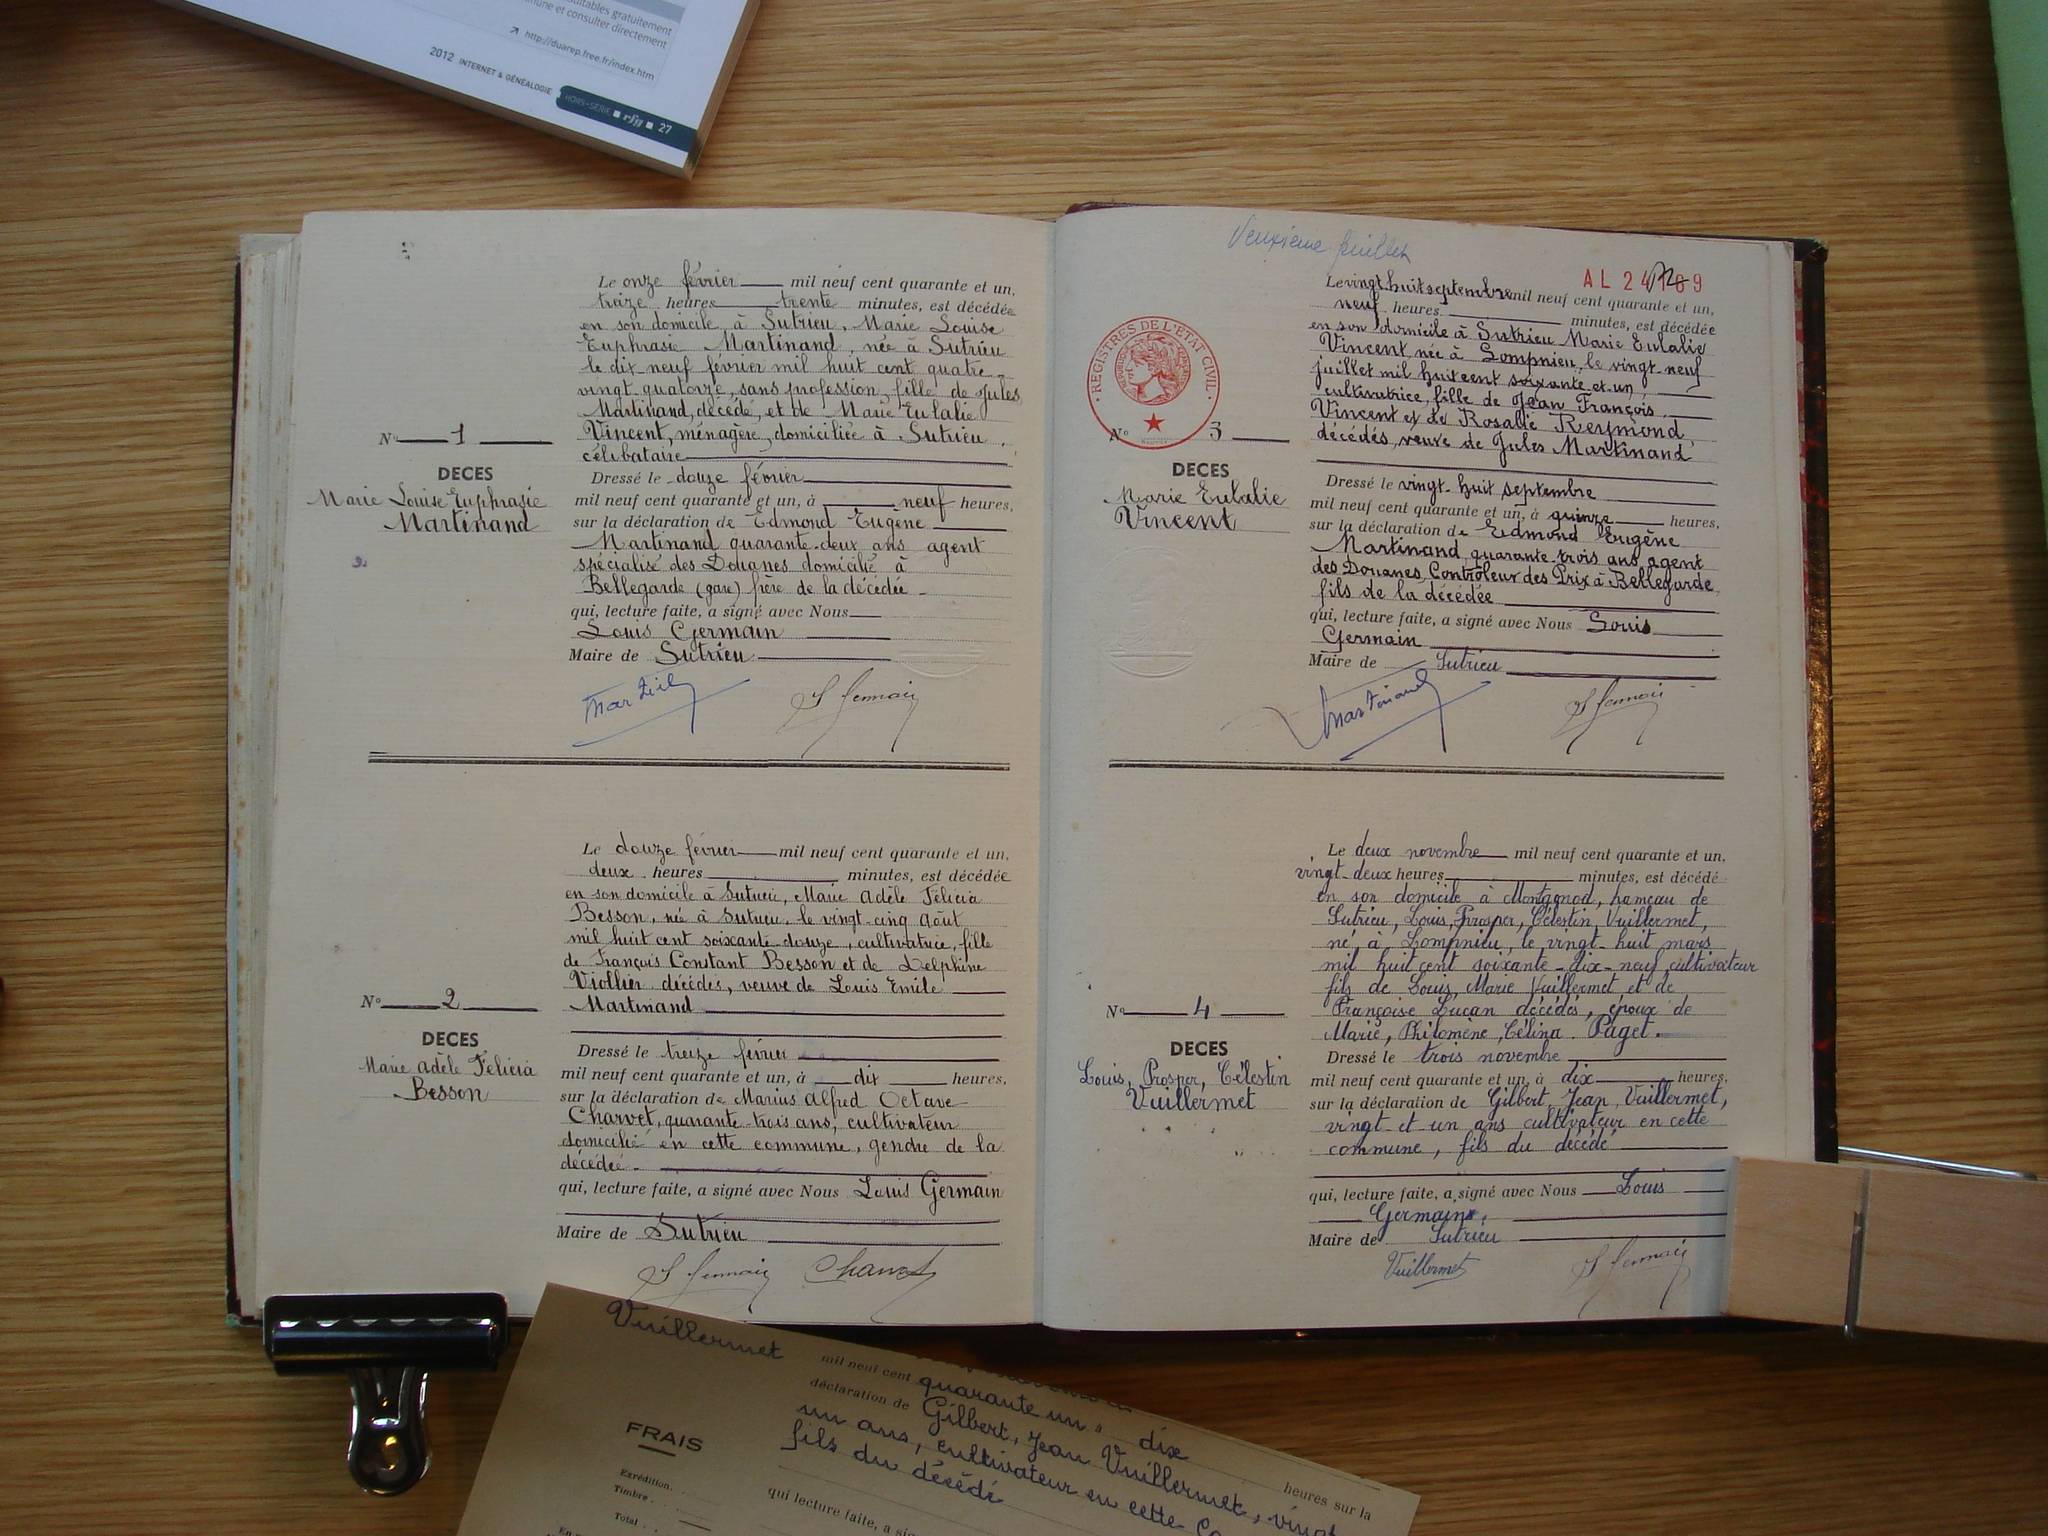 sultables gratuitement
mune et consulter directement
http://duarep.free.fr/index.htm
2012 INTERNET & GÉNÉALOGIE
HORS-SÉRIE ■ rfg ■ 27
Le onze février mil neuf cent quarante et un,
treize heures trente minutes, est décédée
en son domicile à Sutrieu, Marie Louise
Euphrasie Martinand, née à Sutrieu
le dix-neuf février mil huit cent quatre-
vingt-quatorze, sans profession, fille de Jules
Martinand, décédé, et de Marie Eulalie
Vincent, ménagère, domiciliée à Sutrieu,
célibataire
N° 1
DECES
Marie Louise Euphrasie
Martinand
Dressé le douze février
mil neuf cent quarante et un, à neuf heures,
sur la déclaration de Edmond Eugène
Martinand quarante-deux ans agent
spécialisé des Douanes domicilié à
Bellegarde (gare) frère de la décédée -
qui, lecture faite, a signé avec Nous
Louis Germain
Maire de Sutrieu
L Germain
Le douze février mil neuf cent quarante et un,
deux heures minutes, est décédée
en son domicile à Sutrieu, Marie Adèle Félicia
Besson, née à Sutrieu, le vingt-cinq Août
mil huit cent soixante-douze, cultivatrice, fille
de François Constant Besson et de Delphine
Viollier décédés, veuve de Louis Emile
Martinand
N° 2
DECES
Marie Adèle Félicia
Besson
Dressé le treize février
mil neuf cent quarante et un, à dix heures,
sur la déclaration de Marius Alfred Octave
Charvet, quarante-trois ans, cultivateur
domicilié en cette commune, gendre de la
décédée -
qui, lecture faite, a signé avec Nous Louis Germain
Maire de Sutrieu
L Germain Charvet
Deuxième feuillet
AL 24
REGISTRES DE L'ETAT CIVIL
Le vingt huit septembre mil neuf cent quarante et un,
neuf heures minutes, est décédée
en son domicile à Sutrieu Marie Eulalie
Vincent, née à Lompnieu, le vingt-neuf
juillet mil huit cent soixante-et-un,
cultivatrice, fille de Jean François
Vincent et de Rosalie Reymond,
décédés, veuve de Jules Martinand
N° 3
DECES
Marie Eulalie
Vincent
Dressé le vingt-huit septembre
mil neuf cent quarante et un, à quinze heures,
sur la déclaration de Edmond Eugène
Martinand quarante-trois ans, agent
des Douanes, Contrôleur des Prix à Bellegarde,
fils de la décédée
qui, lecture faite, a signé avec Nous Louis
Germain
Maire de Sutrieu
Martinand L Germain
Le deux novembre mil neuf cent quarante et un,
vingt-deux heures minutes, est décédé
en son domicile à Montgonod, hameau de
Sutrieu, Louis, Prosper, Célestin, Vuillermet,
né, à Lompnieu, le vingt-huit mars
mil huit cent soixante-dix-neuf, cultivateur
fils de Louis, Marie Vuillermet et de
Françoise Lucan décédés, époux de
Marie, Philomène, Célina Paget.
N° 4
DECES
Louis, Prosper, Célestin
Vuillermet
Dressé le trois novembre
mil neuf cent quarante et un, à dix heures,
sur la déclaration de Gilbert, Jean, Vuillermet,
vingt-et-un ans cultivateur en cette
commune, fils du décédé
qui, lecture faite, a signé avec Nous Louis
Germain
Maire de Sutrieu
Vuillermet L Germain
Vuillermet
mil neuf cent quarante un, dix
heures sur la
déclaration de Gilbert, Jean Vuillermet, vingt
un ans, cultivateur en cette
fils du décédé
FRAIS
Expédition
Timbre
Total
qui lecture faite, a